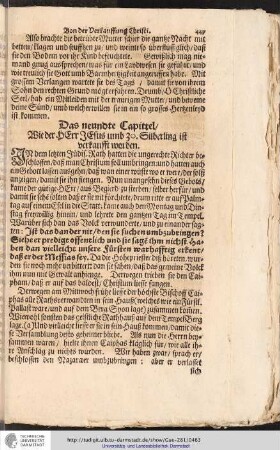 Von der Verkauffung Christi. 449
Also brachte die betrübte Mutter schier die gantze Nacht mit
betten / klagen und seufftzen zu, und weinte so überflüssig lich / daß
sie den Boden vor ihr Kind befeuchtete. Gewißlich mag nie-
mand gnug aussprechen / was für ein Leidwesen sie gefühlt, und
wie treulich sie Gott umb Barmhertzigkeit angeruffen habe. Mit
grossem Verlangen wartete sie des Tages / damit sie von ihrem
Sohn den rechten Grund möchte erfahren. O Christliche
Seel / hab ein Mitleiden mit der traurigen Mutter / und beweine
deine Sünd / umb welcher willen sie in ein so grosses Hertzenleyd
ist kommen.
Das neundte Capittel.
Wie der HErr JEsus umb 30. Silberling ist
verkaufft worden.
IN dem letzten Jüdis. Rath hatten die ungerechte Richter be-
schlossen, daß man Christum solt umbringen und hatten auch
ein Gebott lassen ausgehn, daß wan einer wuste wo er wäre / der solt
anzeigen, damit sie ihn fiengen. Nun unangesehen dieses Gebots /
kame der gütige HErr / aus Begierd zu sterben / selber herfür / und
damit sie solten sehen daß er sie nit fürchtete, ritte er am Palm-
tag auf einem Esel in die Statt, kame auch den Montag und Dins-
tag freywillig hinein, und lehrete den gantzen Tag im Tempel.
Warüber sich dan das Volck verwunderte, und zu einander sag-
ten: Ist das dan der nit / den sie suchen umbzubringen?
Siehe er predigt offentlich und sie sagt ihm nichts. Ha-
ben dan vielleicht unsere Fürsten warhafftig erkent /
daß er der Messias sey. Da die Hohepriester diß höreten, wur-
den sie noch mehr erbittert dan sie sahen, daß das gemeine Volck
nun umb seine Gewalt anhienge. Derwegen trieben sie den Cai-
pham / daß er auf das baldest / Christum liesse fangen.
Derwegen am Mittwoch frühe liesse der höchste Bischoff Caiphas
alle Rathsverwandten in sein Hauß / welches wie ein Fürstl.
Pallast ware, und auf dem Berg Syon lage) zusammen kommen.
Wiewohl sonsten das geistliche Rathhauß auf dem Tempels Berg
lage. (a) Und vielleicht ließ er sie in sein Hauß kommen / damit die-
se Versamblung desto geheimer bliebe. Als nun die Herren bey-
sammen waren / hielte ihnen Caiphas kläglich für / wie alle ih-
re Anschläg zu nichts wurden. Wir haben zwar / sprach er /
beschlossen den Nazaräer umbzubringen: aber er verlasset
sich
TECHNISCHE UNIVERSITÄT DARMSTADT
http://tudigit.ulb.tu-darmstadt.de/show/Gue-7811/0463
Universitäts- und Landesbibliothek Darmstadt